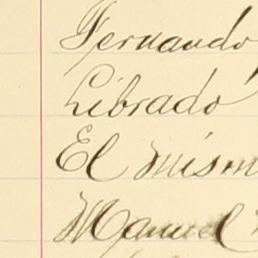 Fernando
Librado
El mism
Manuel